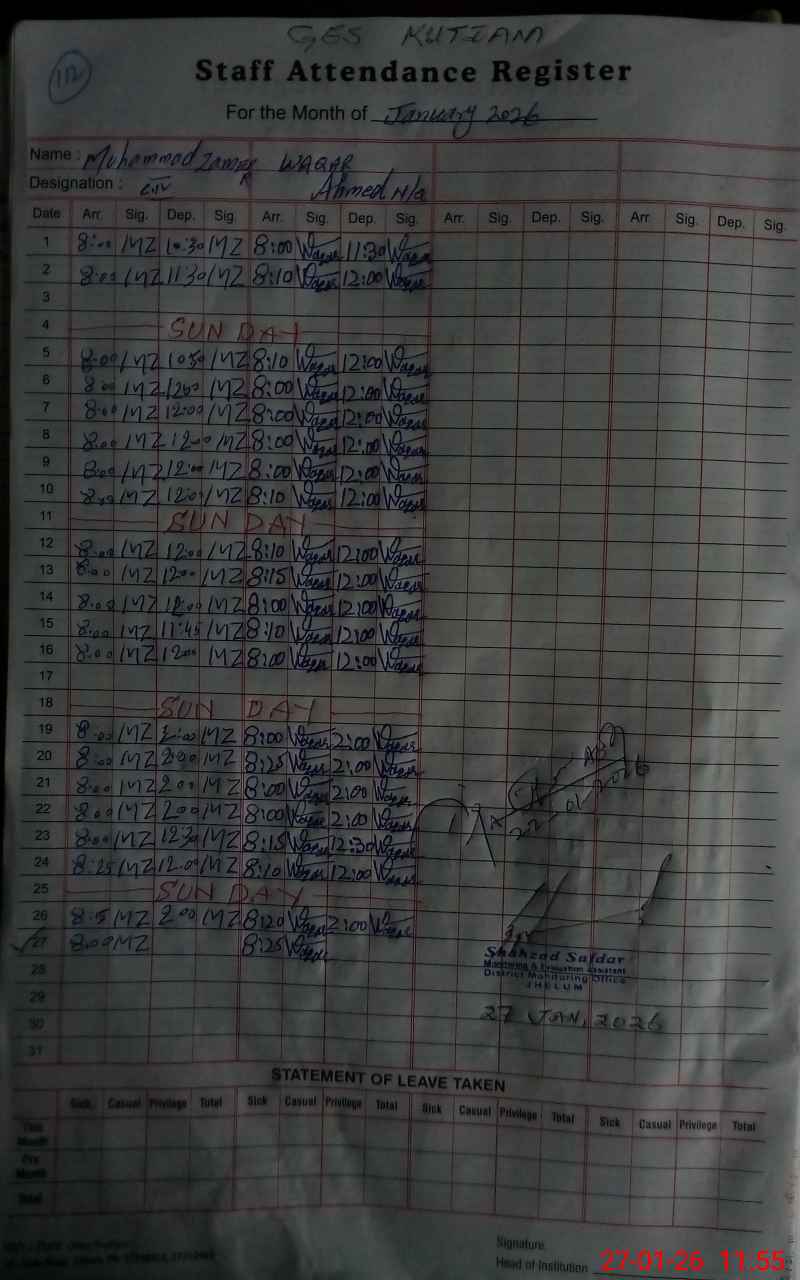 112
GES KUTIAM
Staff Attendance Register
For the Month of January 2026
Name : Muhammad Zameer WAQAR
Designation : Ahmed N/Q
Date Arr. Sig. Dep. Sig. Arr. Sig. Dep. Sig. Arr. Sig. Dep. Sig. Arr. Sig. Dep. Sig.
1 8:00 MZ 10:30 MZ 8:00 Waqar 11:30 Waqar
2 8:00 MZ 11:30 MZ 8:10 Waqar 12:00 Waqar
3
4 SUN DAY
5 8:00 MZ 1030 MZ 8:10 Waqar 12:00 Waqar
6 8:00 MZ 1200 MZ 8:00 Waqar 12:00 Waqar
7 8:00 MZ 12:00 MZ 8:00 Waqar 12:00 Waqar
8 8:00 MZ 1200 MZ 8:00 Waqar 12:00 Waqar
9 8:00 MZ 12:00 MZ 8:00 Waqar 12:00 Waqar
10 8:00 MZ 12:00 MZ 8:10 Waqar 12:00 Waqar
11 SUN DAY
12 8:00 MZ 12:00 MZ 8:10 Waqar 12:00 Waqar
13 8:00 MZ 1200 MZ 8:15 Waqar 12:00 Waqar
14 8:00 MZ 12:00 MZ 8:00 Waqar 12:00 Waqar
15 8:00 MZ 11:45 MZ 8:10 Waqar 12:00 Waqar
16 8:00 MZ 1200 MZ 8:00 Waqar 12:00 Waqar
17
18 SUN DAY
19 8:00 MZ 2:00 MZ 8:00 Waqar 2:00 Waqar
20 8:00 MZ 200 MZ 8:25 Waqar 2:00 Waqar
21 8:00 MZ 200 MZ 8:00 Waqar 2:00 Waqar
22 8:00 MZ 200 MZ 8:00 Waqar 2:00 Waqar
22-01-2026
23 8:00 MZ 1230 MZ 8:15 Waqar 12:30 Waqar
24 8:25 MZ 12:00 MZ 8:10 Waqar 12:00 Waqar
25 SUN DAY
26 8:5 MZ 200 MZ 8:20 Waqar 2:00 Waqar
27 8:00 MZ 8:25 Waqar
Shahzad Safdar
Monitoring & Evaluation Assistant
District Monitoring Office
JHELUM
28
29
27 JAN, 2026
30
31
STATEMENT OF LEAVE TAKEN
Sick Casual Privilege Total Sick Casual Privilege Total Sick Casual Privilege Total Sick Casual Privilege Total
This Month
Pre Month
Total
Signature
Head of Institution
27-01-26 11.55